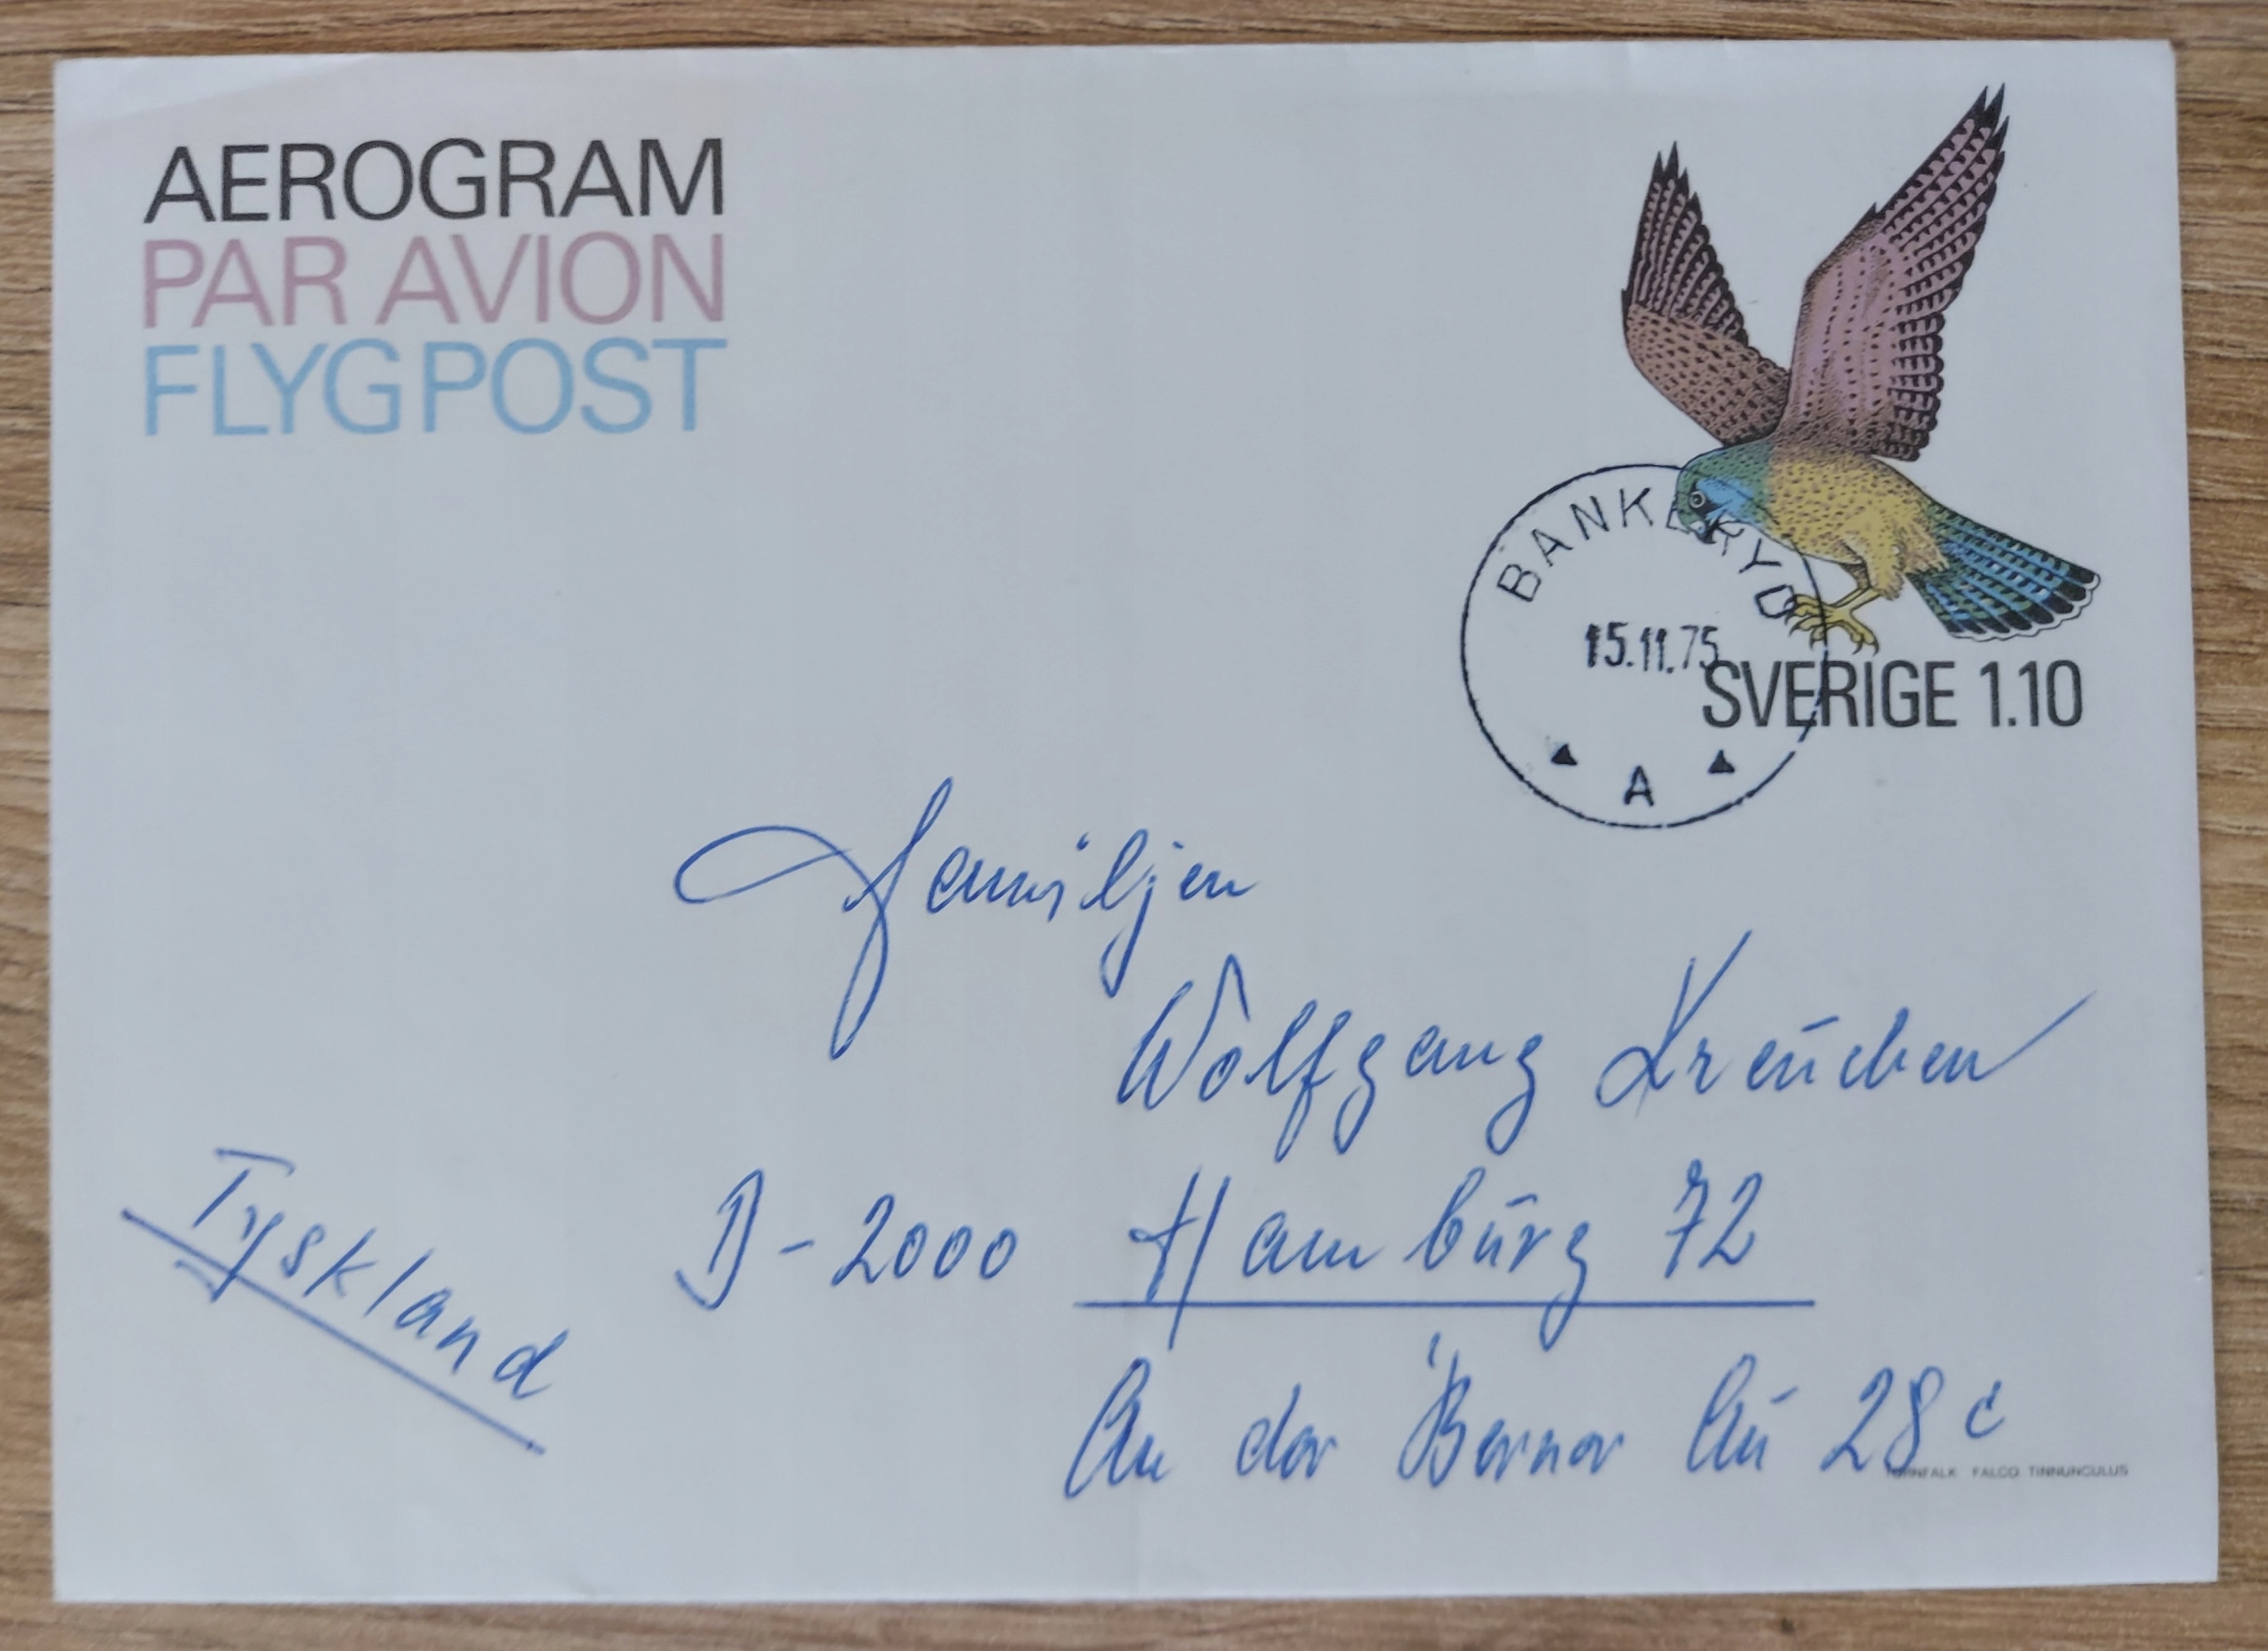 AEROGRAM
PAR AVION
FLYGPOST
BANKERYD
15.11.75
A
SVERIGE 1.10
Familjen
Wolfgang Kreuchen
D-2000 Hamburg 72
An der Berner Au 28 c
Tyskland
TORNFALK FALCO TINNUNCULUS